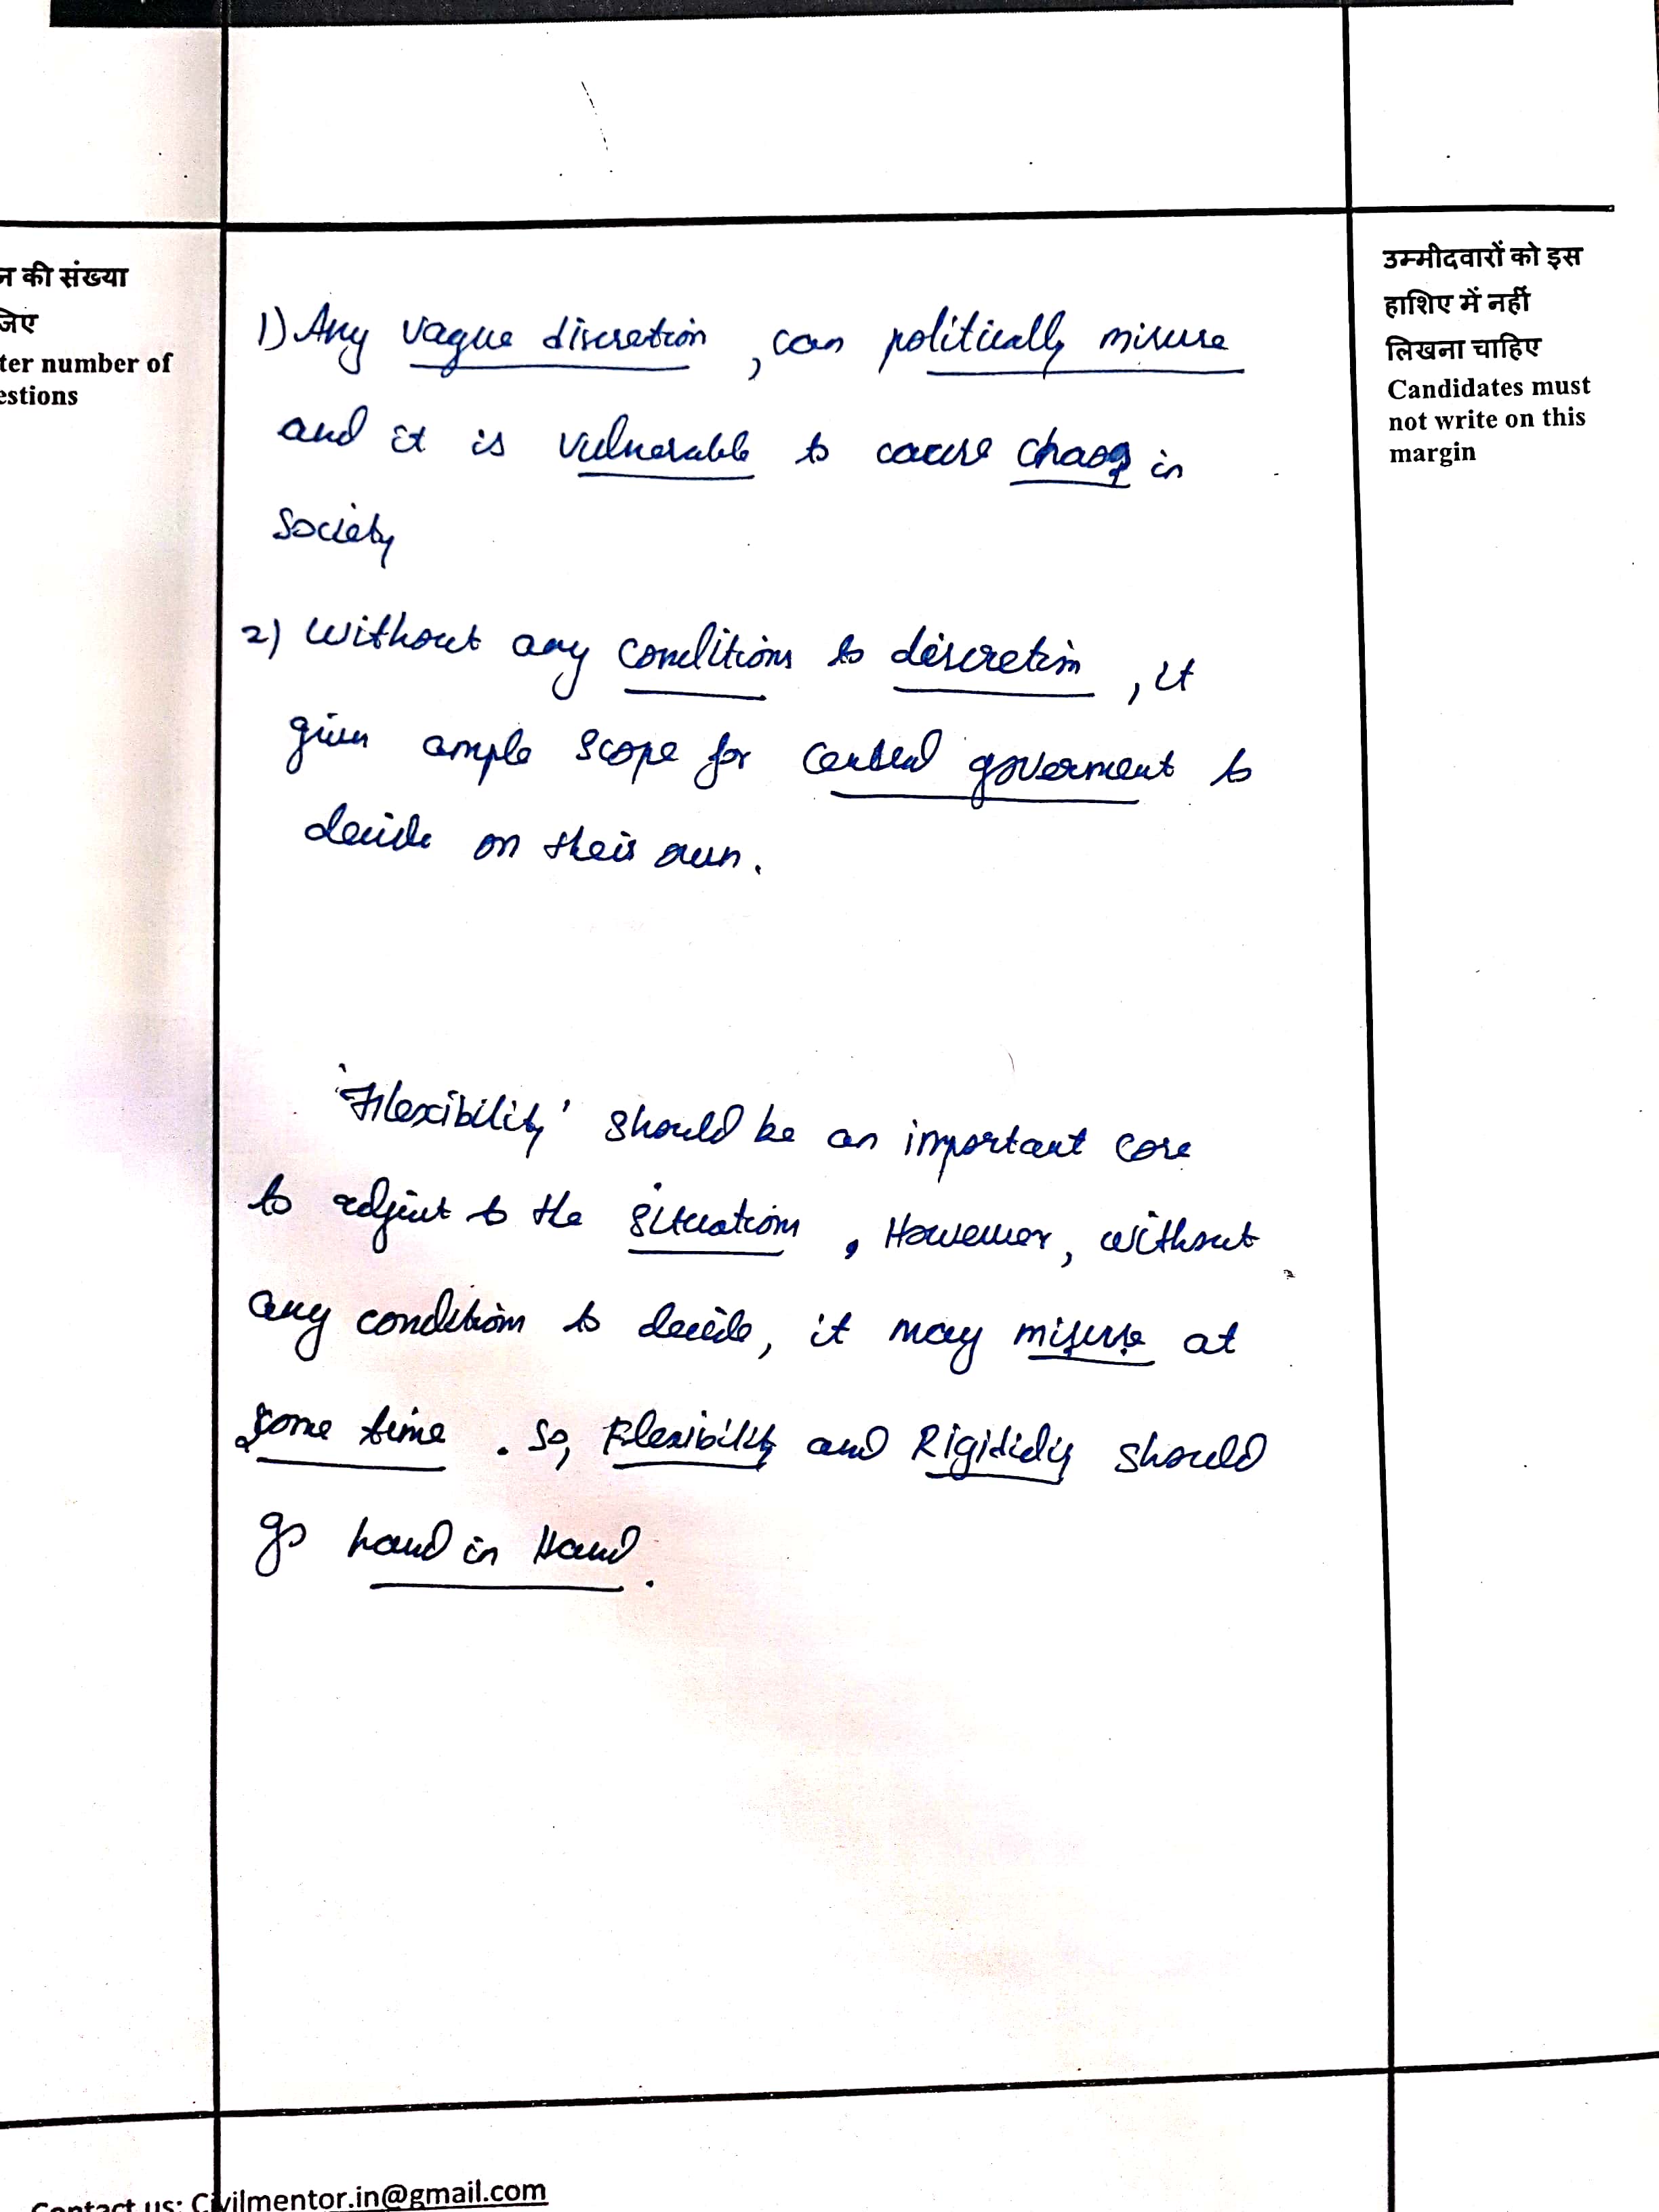 न की संख्या
जिए
ter number of
estions
उम्मीदवारों को इस
हाशिए में नहीं
लिखना चाहिए
Candidates must
not write on this
margin
1) Any vague discretion, can politically misuse
and it is vulnerable to cause chaos in
society
2) Without any conditions to discretion, it
gives ample scope for central goverment to
decide on their own.
'Flexibility' should be an important core
to adjust to the situations, However, without
any conditions to decide, it may misuse at
some time. So, Flexibility and Rigitidy should
go hand in Hand.
Contact us: Civilmentor.in@gmail.com